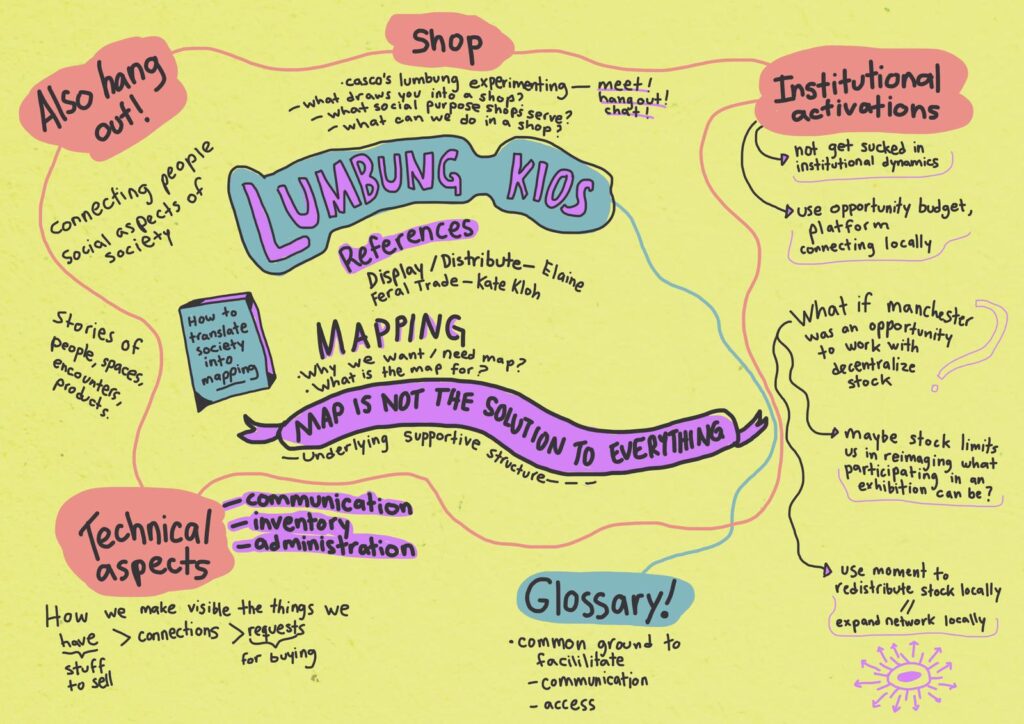 Shop
·casco's lumbung experimenting — meet!
hang out!
chat!
– what draws you into a shop?
– what social purpose shops serve?
– what can we do in a shop?
Also hang
out!
Connecting people
Social aspects of
society
Stories of
people, spaces,
encounters,
products.
LUMBUNG KIOS
References
Display / Distribute — Elaine
Feral Trade — Kate Kloh
How to
translate
society
into
mapping
MAPPING
·Why we want / need map?
·What is the map for?
MAP IS NOT THE SOLUTION TO EVERYTHING
— Underlying supportive structure – – – –
Technical
aspects
– communication
– inventory
– administration
How we make visible the things we
have > connections > requests
stuff
to sell
for buying
Glossary!
·common ground to
facililitate
– communication
– access
Institutional
activations
not get sucked in
institutional dynamics
use opportunity budget,
platform
connecting locally
What if manchester
was an opportunity
to work with
decentralize
stock
?
maybe stock limits
us in reimaging what
participating in an
exhibition can be?
use moment to
redistribute stock locally
//
expand network locally